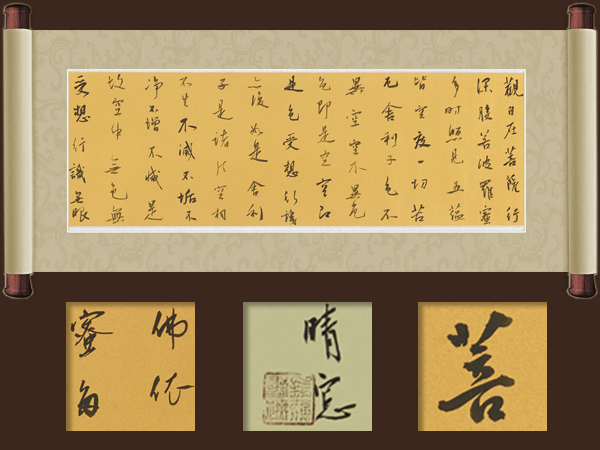 觀自在菩薩行
深般若波羅蜜
多時照見五蘊
皆空度一切苦
厄舍利子色不
異空空不異色
色即是空空即
是色受想行識
亦復如是舍利
子是諸法空相
不生不滅不垢不
淨不增不減是
故空中無色無
受想行識無眼
佛依
蜜多
晴窓
菩